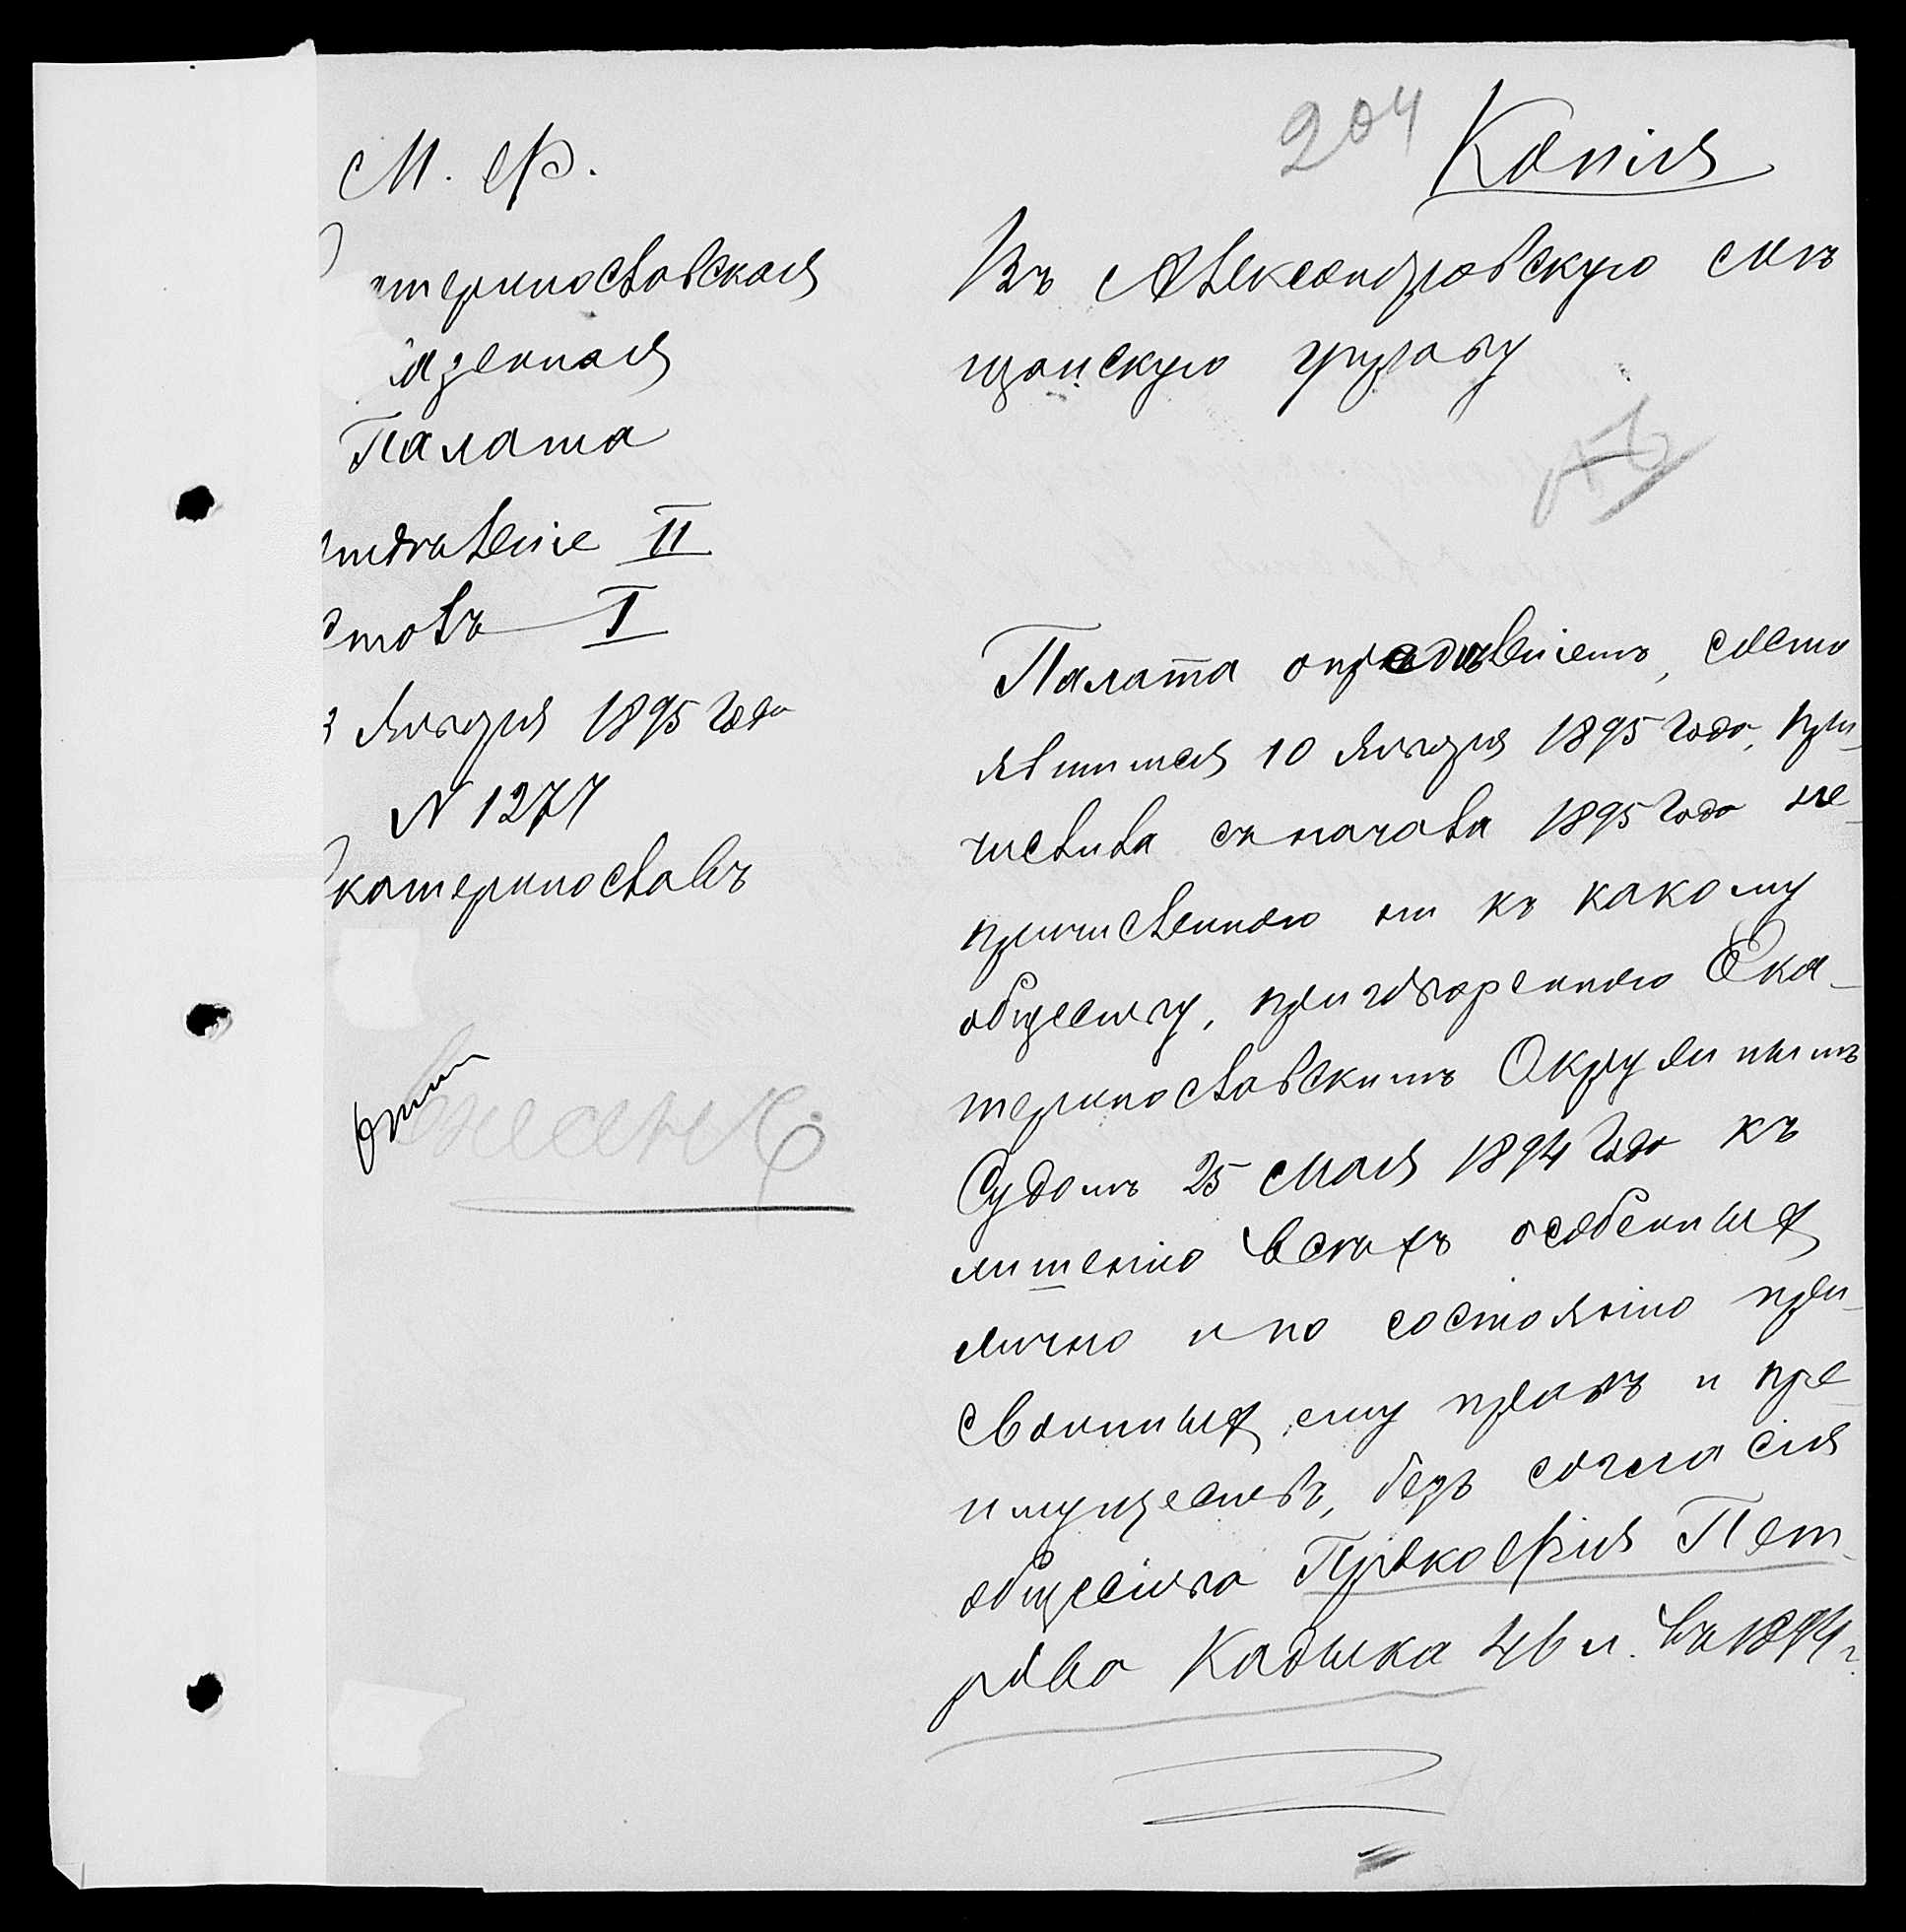 204
Копія
М. Ф.
теринославская
азенная
Палата
тдѣленіе II
столъ I
Января 1895 года
N 1277
катеринославъ
Въ Александровскую мѣ
щанскую управу
Палата опредѣленіемъ, состо
явшимся 10 Января 1895 года, при-
числила съ начала 1895 года не-
причисленнаго ни къ какому
обществу, приговореннаго Ека-
теринославскимъ Окружнымъ
Судомъ 25 Мая 1894 года къ
лишенію всѣхъ особенныхъ
лично и по состоянію при-
своенныхъ ему правъ и пре-
имуществъ, безъ согласія
общества Прокофія Пет-
рова Кадыка 46 л. въ 1894 г.